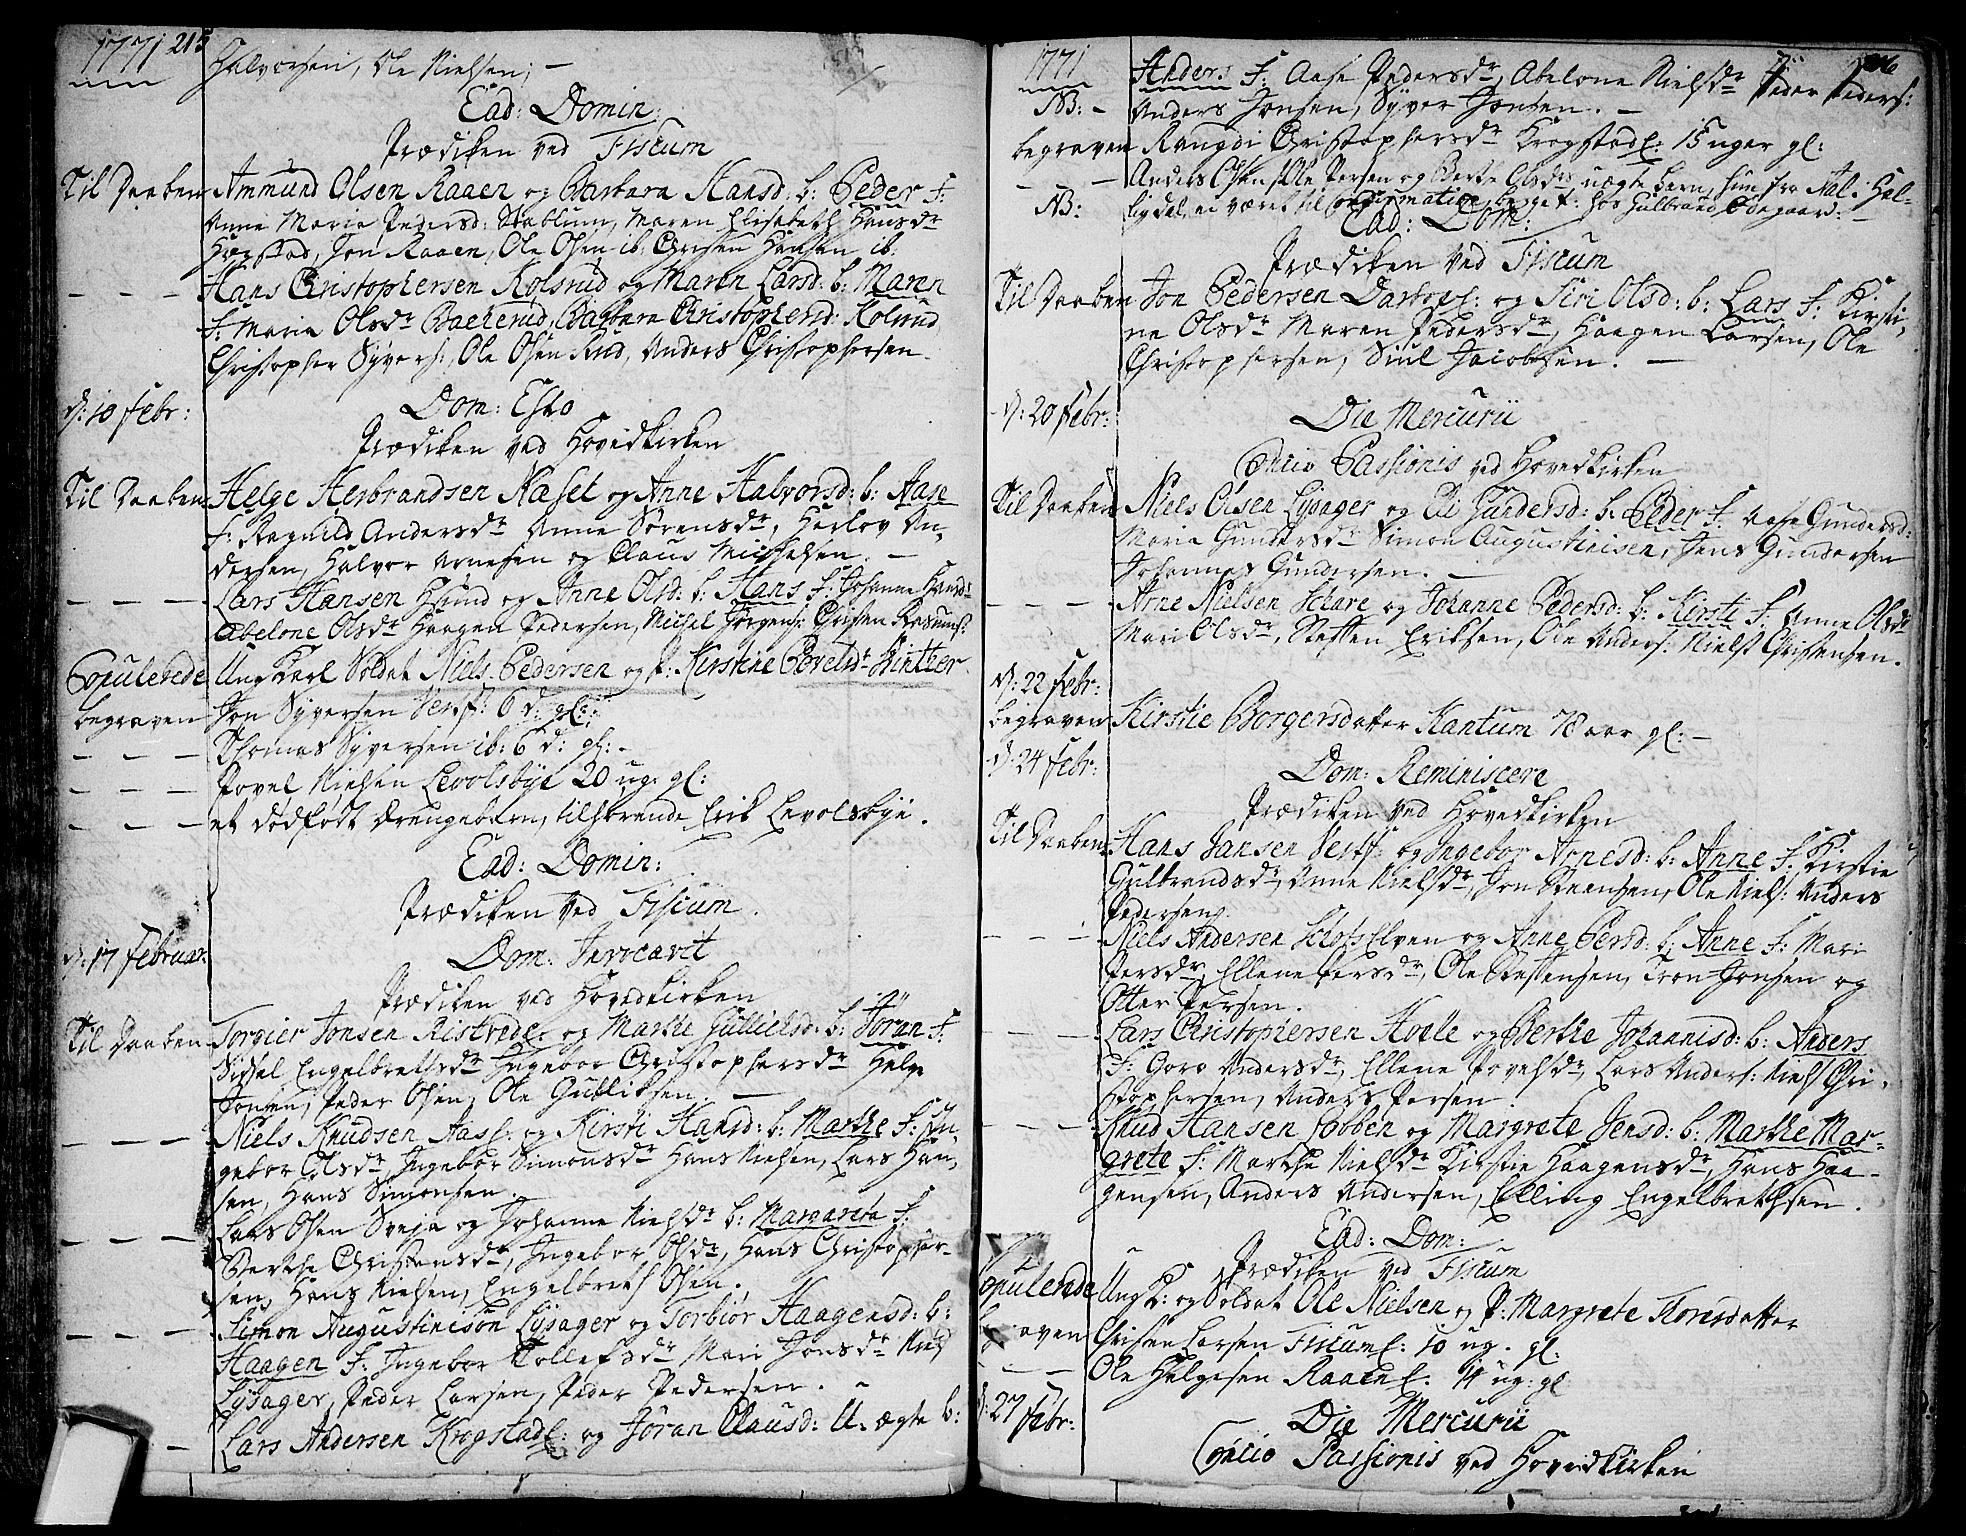 1771 215
Halvorsen, Ole Nielsen; –
Ead: Domin:
Prædiken ved Fiscum
Til Daaben Ammund Olsen Raaen og Barbara Hansd: b: Peder F:
Anne Maria Pedersd: Stablum, Maren Elisabeth Hansdr
Hægstad, Jon Raaen, Ole Olsen ib. Christen Hansen ib:
– – – Hans Christophersen Kolsrud og Maren Larsd: b: Maren
F: Maria Olsdr Bacherud, Barbara Christophersd: Kolsrud
Christopher Syvers:, Ole Olsen Rud, Anders Christophersen.
D: 10 Febr: Dom: Esto
Prædiken ved Hovedkirken
Til Daaben Helge Herbrandsen Næset og Anne Halvorsd: b: Aase
F: Ragnild Andersdr Anne Sørensdr, Herlov An-
dersen, Halvor Arnesen og Claus Michelsen. –
– – – Lars Hansen Hsund og Anne Olsd: b: Hans F: Johanne Hansdr
Abelone Olsdr Haagen Pedersen, Michel Jørgens: Christen Rasmus:
Copulerede Ung Karl Soldat Niels Pedersen og P: Kirstine Povelsdr Wintter
begraven Jon Syversen Vestf: 6 d: gl: –
– – – Thomas Syversen ib: 6 d: gl: –
– – – Povel Nielsen Levolsbye 20 ug: gl:
– – – et dødfødt Drengebarn, tilhørende Erik Levolsbye.
Ead: Domin:
Prædiken ved Fiscum.
D: 17 Februar: Dom: Invocavit
Prædiken ved Hovedkirken
Til Daaben Torgier Jonsen Ristvede: og Marthe Gullichsd: b: Jøran F:
Sidsel Engelbretsdr Ingebor Christophersdr Helge
Jonsen, Peder Olsen, Ole Gulliksen. –
– – – Niels Knudsen Aas: og Kirsti Hansd: b: Marthe F: In-
gebor Olsdr, Ingebor Simonsdr Hans Nielsen, Lars Han-
sen, Hans Simonsen.
– – – Lars Olsen Sveja og Johanne Nielsdr b: Margareta F:
Berthe Christensdr, Ingebor Olsdr, Hans Christopher-
sen, Hans Nielsen, Engelbret Olsen.
– – – Simon Augustinisøn Lysager og Torbiør Haagensd: b:
Haagen F: Ingebor Tollefsdr Mari Jonsdr Niels
Lysager, Peder Larsen, Peder Pedersen. –
– Lars Andersen Krogstad: og Jøran Clausd: U-ægte b:
1771
Anders F: Aase Pedersdr, Abelone Nielsdr Peder Peders:
NB: – Anders Jonsen, Syver Jonsen. –
begraven Rangdi Christophersdr Krogstad: 15 uger gl:
– – Anders Olsen Ole Persen og Berthe Olsdrs uægte barn, hun fra Aal i Hal-
NB: lingdal, ei været til Confirmation, hos Gulbrand Ødegaard: –
Ead: Dom:
Prædiken ved Fiscum
Til Daaben Jon Pedersen Darbop: og Siri Olsd: b: Lars F: Kirsti-
ne Olsdr Maren Pedersdr, Haagen Larsen, Ole
Christophersen, Siul Jacobsen. –
D: 20 Febr: Die Mercurii
Concio Passionis ved Hovedkirken
Til Daaben Niels Olsen Lysager og Eli Gundersd: b: Peder F: Aase Gundersd:
Maria Gundersdr Simon Augustinisen, Jens Gundersen
Johannes Gundersen. –
– – – Arne Nielsen Schare og Johanne Pedersd: b: Kirsti F: Anne Olsdr
Mari Olsdr, Steffen Eriksen, Ole Anders: Niels Christensen.
D: 22 Febr:
begraven Kirstie Borgersdatter Kantum 78 aar gl: –
D: 24 Febr:
Dom: Reminiscere
Prædiken ved Hovedkirken
Til Daaben Hans Jansen Vestf: og Ingebor Arnesd: b: Anne F: Kirstie
Gulbrandsdr, Anne Nielsdr, Jon Steensen, Ole Niels: Anders
Pedersen.
– – – Niels Andersen SchotsElven og Anne Persd: b: Anne F: Mari
Persdr, Ellene Persdr, Ole Steffensen, Tron Jonsen og
Otter Persen.
– – – Lars Christophersen Hvele og Berthe Johannisd: b: Anders
F: Goro Andersdr, Ellene Povelsdr, Lars Anders: Niels Chri-
stophersen, Anders Persen
– – – Knud Hansen Lobben og Margrete Jensd: b: Marthe Mar-
grete F: Marthe Nielsdr Kirstie Haagensdr, Hans Haa-
gensen, Anders Andersen, Elling Engelbrethsen.
Ead: Dom:
Prædiken ved Fiscum
Copulerede Ung K: og Soldat Ole Nielsen og P: Margrete Toresdatter
begraven Christen Larsen Fiscum: 10 ug. gl:
– – Ole Helgesen Raaen: 14 ug: gl
D: 27 Febr: Die Mercurii
Concio Passionis ved Hovedkirken